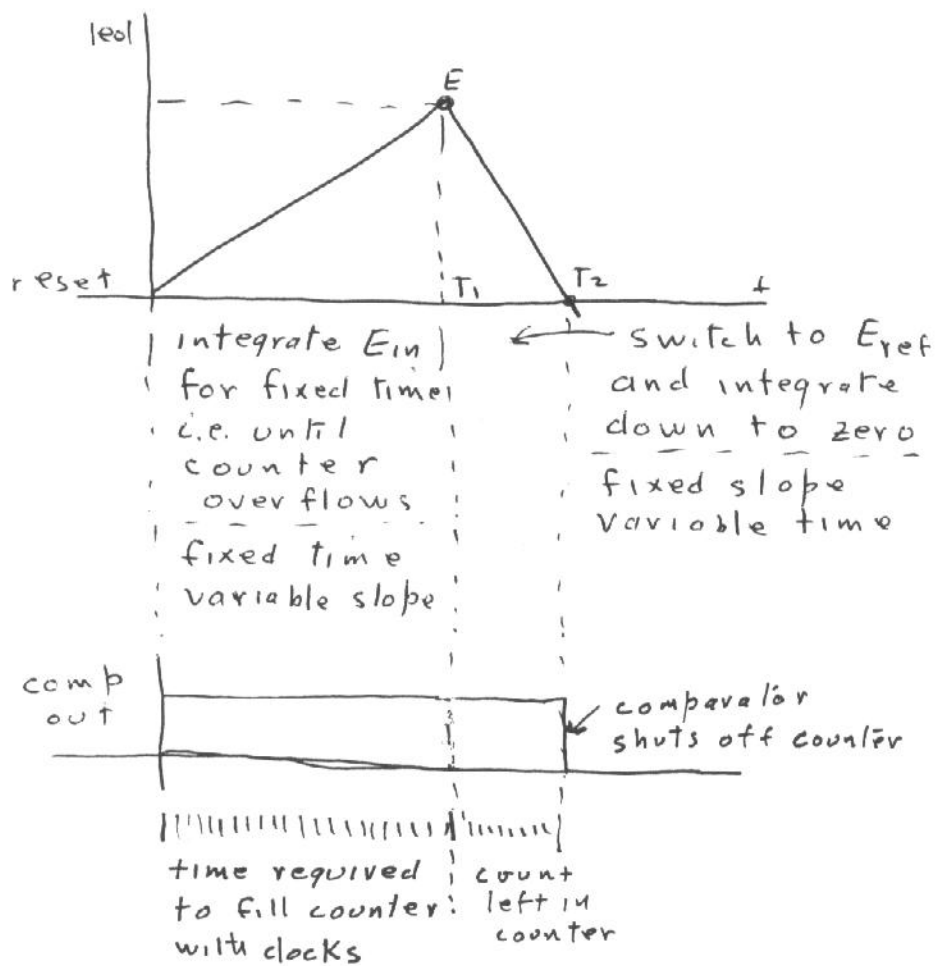 |eo|
E
reset
T1
T2
t
integrate Ein
for fixed time,
i.e. until
counter
overflows
fixed time
variable slope
switch to Eref
and integrate
down to zero
fixed slope
variable time
comp
out
comparator
shuts off counter
time required
to fill counter
with clocks
count
left in
counter